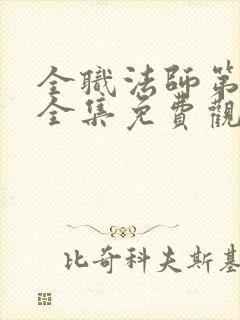 全職法師第
全集免費觀
比奇科夫斯基